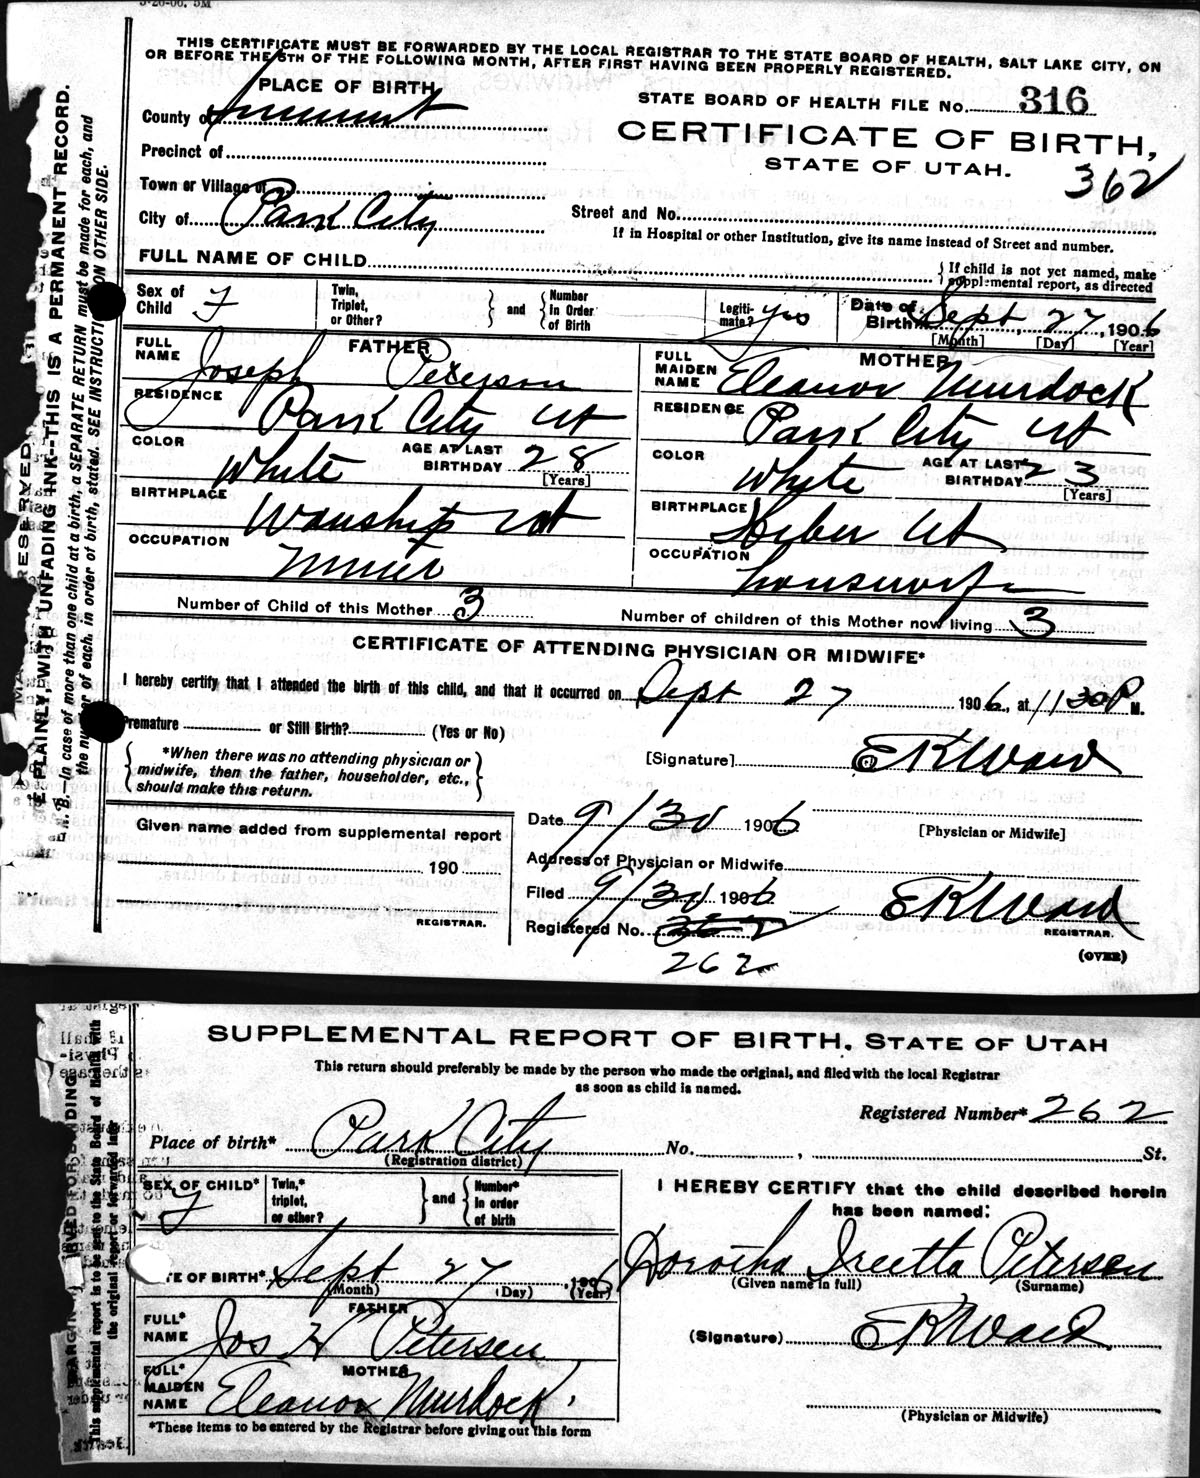 3-20-06. 5M
THIS CERTIFICATE MUST BE FORWARDED BY THE LOCAL REGISTRAR TO THE STATE BOARD OF HEALTH, SALT LAKE CITY, ON
OR BEFORE THE 5TH OF THE FOLLOWING MONTH, AFTER FIRST HAVING BEEN PROPERLY REGISTERED.
PLACE OF BIRTH
County of Summit
Precinct of
Town or Village of
City of Park City
STATE BOARD OF HEALTH FILE No. 316
CERTIFICATE OF BIRTH,
STATE OF UTAH.
362
Street and No.
If in Hospital or other Institution, give its name instead of Street and number.
FULL NAME OF CHILD
If child is not yet named, make
supplemental report, as directed
Sex of Child F
Twin, Triplet, or Other?
and
Number in Order of Birth
Legitimate? yes
Date of Birth Sept, 27, 1906
[Month] [Day] [Year]
FATHER
FULL NAME Joseph Peterson
RESIDENCE Park City Ut
COLOR White
AGE AT LAST BIRTHDAY 28
[Years]
BIRTHPLACE Wanship Ut
OCCUPATION Miner
MOTHER
FULL MAIDEN NAME Eleanor Murdock
RESIDENCE Park City Ut
COLOR White
AGE AT LAST BIRTHDAY 23
[Years]
BIRTHPLACE Heber Ut
OCCUPATION housewife
Number of Child of this Mother 3
Number of children of this Mother now living 3
CERTIFICATE OF ATTENDING PHYSICIAN OR MIDWIFE*
I hereby certify that I attended the birth of this child, and that it occurred on Sept 27 1906, at 11 30 P M.
Premature or Still Birth? (Yes or No)
*When there was no attending physician or
midwife, then the father, householder, etc.,
should make this return.
[Signature] E K Ward
[Physician or Midwife]
Given name added from supplemental report
190
REGISTRAR.
Date 9/30 1906
Address of Physician or Midwife
Filed 9/30 1906
E K Ward
REGISTRAR.
Registered No. 362
262
(OVER)
PLAINLY, WITH UNFADING INK--THIS IS A PERMANENT RECORD.
N. B.--In case of more than one child at a birth, a SEPARATE RETURN must be made for each, and
the number of each, in order of birth, stated. SEE INSTRUCTION ON OTHER SIDE.
SUPPLEMENTAL REPORT OF BIRTH, STATE OF UTAH
This return should preferably be made by the person who made the original, and filed with the local Registrar
as soon as child is named.
Registered Number* 262
Place of birth* Park City No. , St.
(Registration district)
SEX OF CHILD* F
Twin,* triplet, or other?
and
Number* in order of birth
I HEREBY CERTIFY that the child described herein
has been named:
Dorotha Ireetta Petersen
(Given name in full) (Surname)
TE OF BIRTH* Sept 27, 1906
(Month) (Day) (Year)
FATHER
FULL* NAME Jos H Petersen
(Signature) E K Ward
MOTHER
FULL* MAIDEN NAME Eleanor Murdock
(Physician or Midwife)
*These items to be entered by the Registrar before giving out this form
This supplemental report is to be sent to the State Board of Health with
the original report or forwarded later